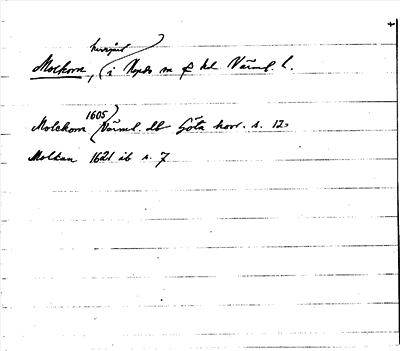 herrgård
Molkom, (i Nyeds sn o hd Värml. l.
1605
Molckom (Värml. db Göta korr. s. 12
Molkan 1621 ib s. 7